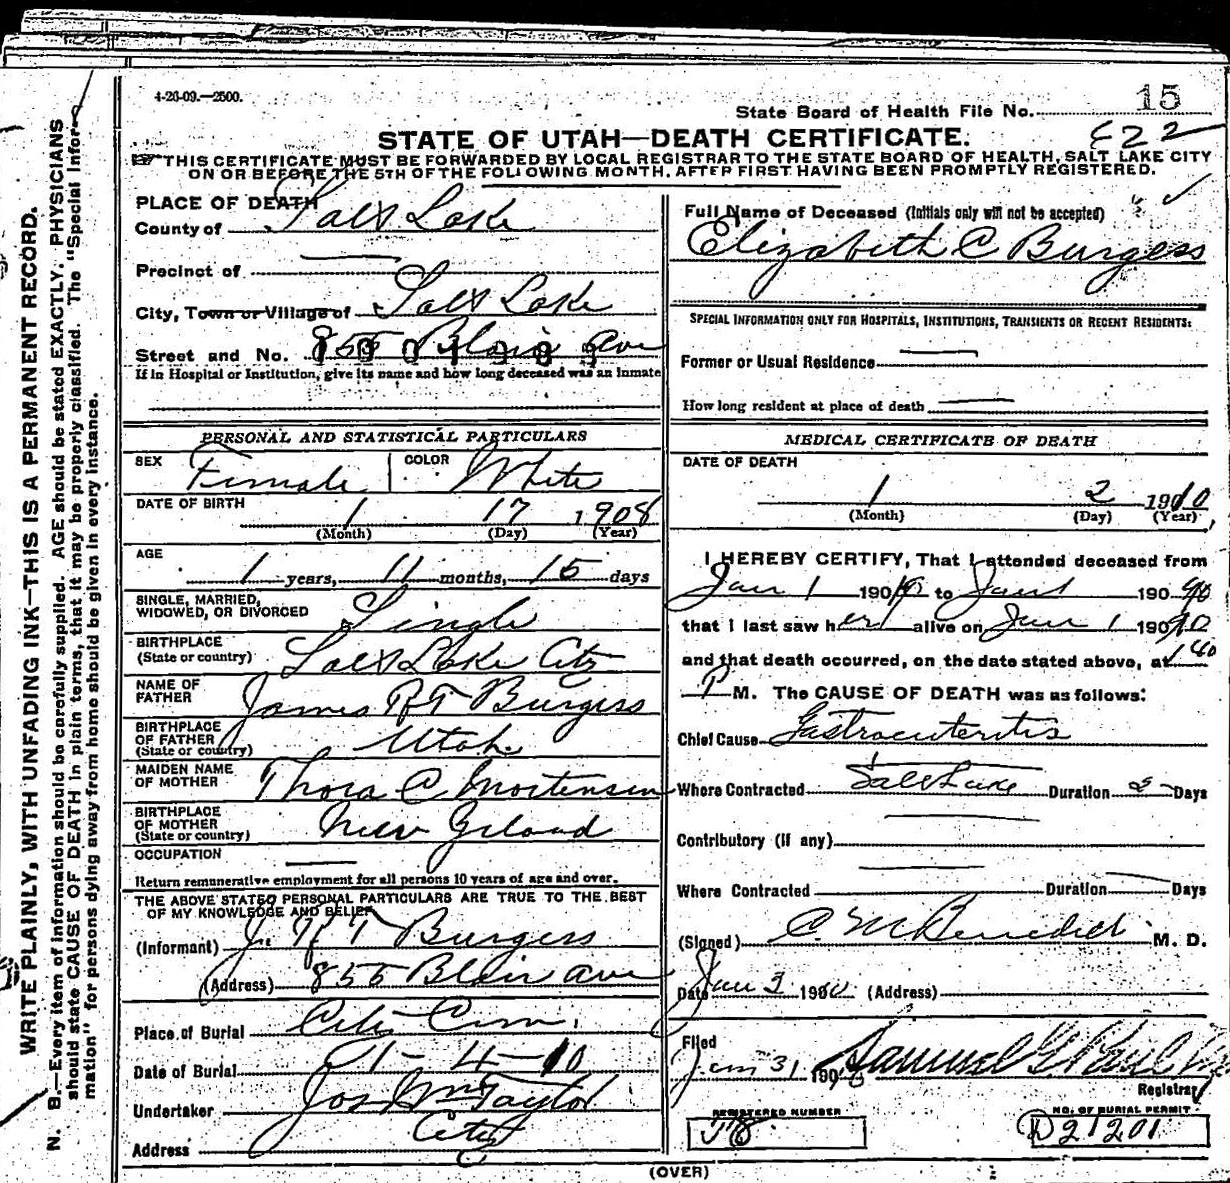 4-26-09.—2500.
State Board of Health File No. 15
STATE OF UTAH—DEATH CERTIFICATE.
622
THIS CERTIFICATE MUST BE FORWARDED BY LOCAL REGISTRAR TO THE STATE BOARD OF HEALTH, SALT LAKE CITY
ON OR BEFORE THE 5TH OF THE FOLLOWING MONTH, AFTER FIRST HAVING BEEN PROMPTLY REGISTERED.
WRITE PLAINLY, WITH UNFADING INK—THIS IS A PERMANENT RECORD.
N. B.—Every item of information should be carefully supplied. AGE should be stated EXACTLY. PHYSICIANS
should state CAUSE OF DEATH in plain terms, that it may be properly classified. The "Special Infor-
mation" for persons dying away from home should be given in every instance.
PLACE OF DEATH
County of Salt Lake
Precinct of
City, Town or Village of Salt Lake
Street and No. 855 Blair Ave
If in Hospital or Institution, give its name and how long deceased was an inmate
PERSONAL AND STATISTICAL PARTICULARS
SEX Female COLOR White
DATE OF BIRTH 1 17 1908
(Month) (Day) (Year)
AGE
1 years, 11 months, 15 days
SINGLE, MARRIED,
WIDOWED, OR DIVORCED Single
BIRTHPLACE
(State or country) Salt Lake City
NAME OF
FATHER James R T Burgess
BIRTHPLACE
OF FATHER
(State or country) Utah
MAIDEN NAME
OF MOTHER Thora C Mortensen
BIRTHPLACE
OF MOTHER
(State or country) New Zeland
OCCUPATION
Return remunerative employment for all persons 10 years of age and over.
THE ABOVE STATED PERSONAL PARTICULARS ARE TRUE TO THE BEST
OF MY KNOWLEDGE AND BELIEF
(Informant) J. R T Burgess
(Address) 855 Blair Ave
Place of Burial City Cem.
Date of Burial 1-4-10
Undertaker Jos Wm Taylor
Address City
Full Name of Deceased (Initials only will not be accepted)
Elizabeth C Burgess
SPECIAL INFORMATION ONLY FOR HOSPITALS, INSTITUTIONS, TRANSIENTS OR RECENT RESIDENTS:
Former or Usual Residence
How long resident at place of death
MEDICAL CERTIFICATE OF DEATH
DATE OF DEATH
1 2 1910
(Month) (Day) (Year)
I HEREBY CERTIFY, That I attended deceased from
Jan 1 190 10 to Jan 1 190 10
that I last saw her alive on Jan 1 190 10
and that death occurred, on the date stated above, at 1 40
P M. The CAUSE OF DEATH was as follows:
Chief Cause Gastroenteritis
Where Contracted Salt Lake Duration 2 Days
Contributory (if any)
Where Contracted Duration Days
(Signed) C. M Benedict M. D.
Date Jan 3 1910 (Address)
Filed
Jan 31 190 Samuel G. Paul
Registrar
REGISTERED NUMBER
NO. OF BURIAL PERMIT
D21201
(OVER)